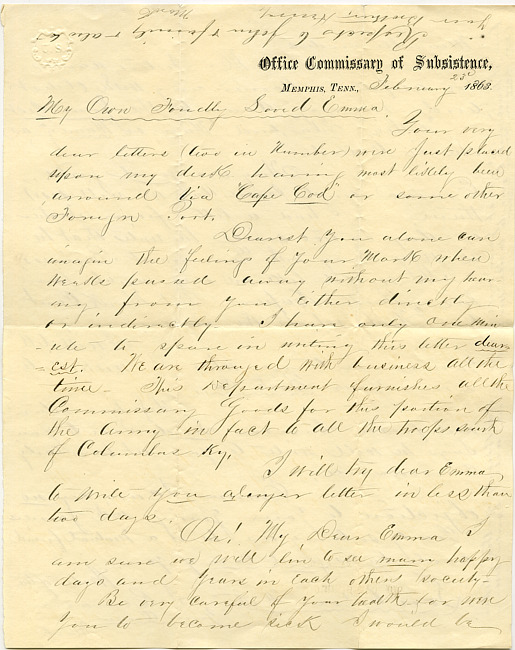 Office Commissary of Subsistence,
Memphis, Tenn., February 23d 1863.
My Own Fondly Loved Emma
Your very
dear letters (two in Number) were just placed
upon my desk having most likely been
arround via "Cape Cod" or some other
Foreign Port.
Dearest You alone can
imagin the feelings of Your Mark when
weeks passed away without my hear-
ing from you either directly
or indirectly. I have only one min-
-ute to spare in writing this letter dear-
-est. We are thronged with business all the
time - This Department furnishes all the
Commissary Goods for this portion of
the Army in fact to all the troops south
of Columbus Ky,
I will try dear Emma
to write you a longer letter in less than
two days.
Oh! My Dear Emma I
am sure we will live to see many happy
days and Years in each others society -
Be very careful of Your health for were
You to become sick I would be
Respects to John & family
Mark